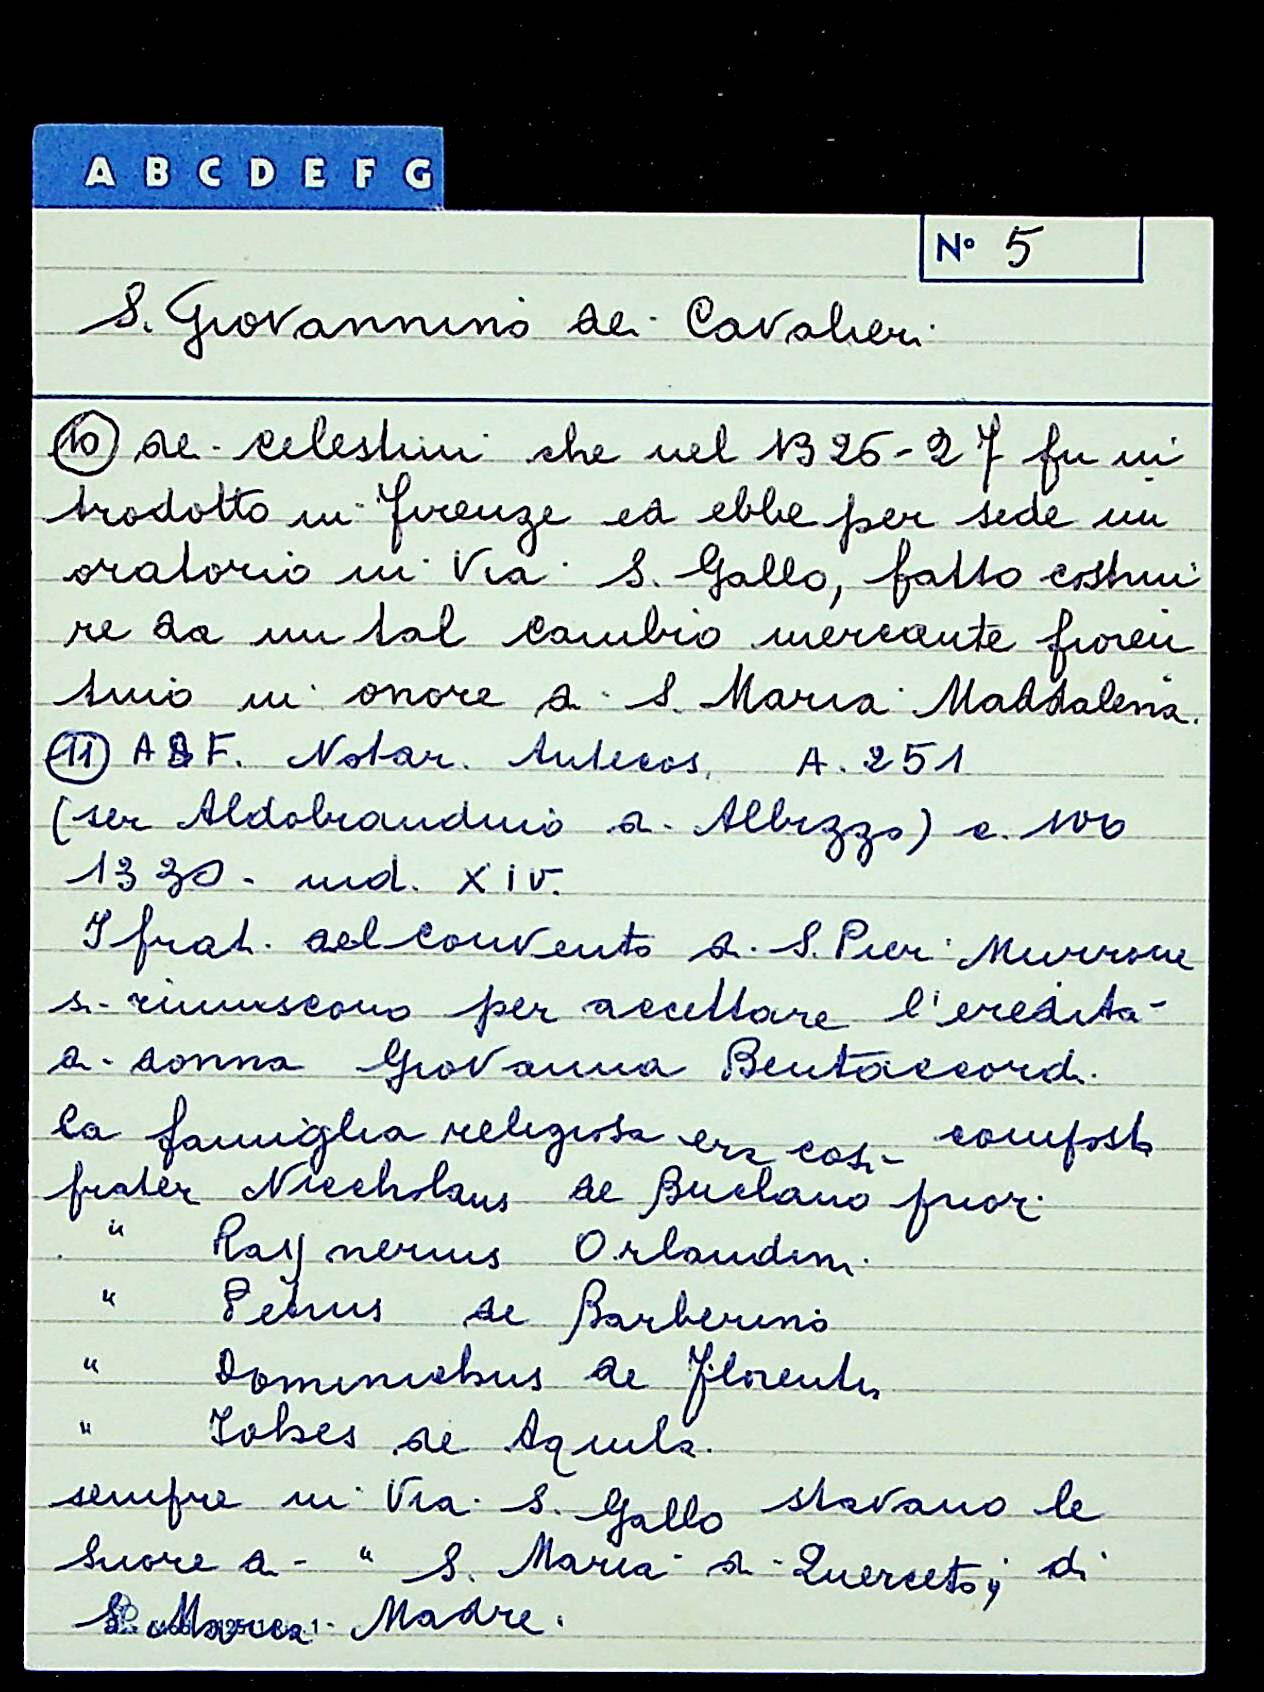 A B C D E F G
N° 5
S. Giovannino dei Cavalieri
10 dei celestini che nel 1326-27 fu in
trodotto in Firenze ed ebbe per sede un
oratorio in Via S. Gallo, fatto costrui
re da un tal Cambio mercante fioren
tino in onore di S. Maria Maddalena.
11 ASF. Notar. Antecos. A. 251
(ser Aldobrandino di Albizzo) c. 100
1330. ind. XIV.
I frati del convento di S. Pier Murrone
si riuniscono per accettare l'eredità
di donna Giovanna Bentaccordi
la famiglia religiosa era così composta
frater Niccholaus de Buclano prior
" Raynerius Orlandini
" Petrus de Barberino
" Dominichus de Florentia
" Iohes de Aquila.
sempre in Via S. Gallo stavano le
suore di " S. Maria di Querceto; di
S. Maria Madre.